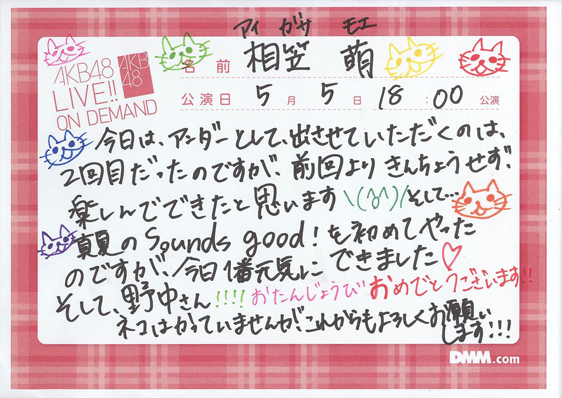 アイ がサ モエ
AKB48
LIVE!!
ON DEMAND
AKB
48
名 前 相笠 萌
公演日 5月 5日 18:00 公演
今日は、アンダーとして、出させていただくのは、
2回目だったのですが、前回よりきんちょうせず、
楽しんでできたと思います\(^^)/そして...
真夏のSounds good!を初めてやった
のですが、今日1番元気にできました♡
そして、野中さん!!!!おたんじょうびおめでとうございます!!
ネコはかっていませんが、これからもよろしくお願い
します!!!
DMM.com